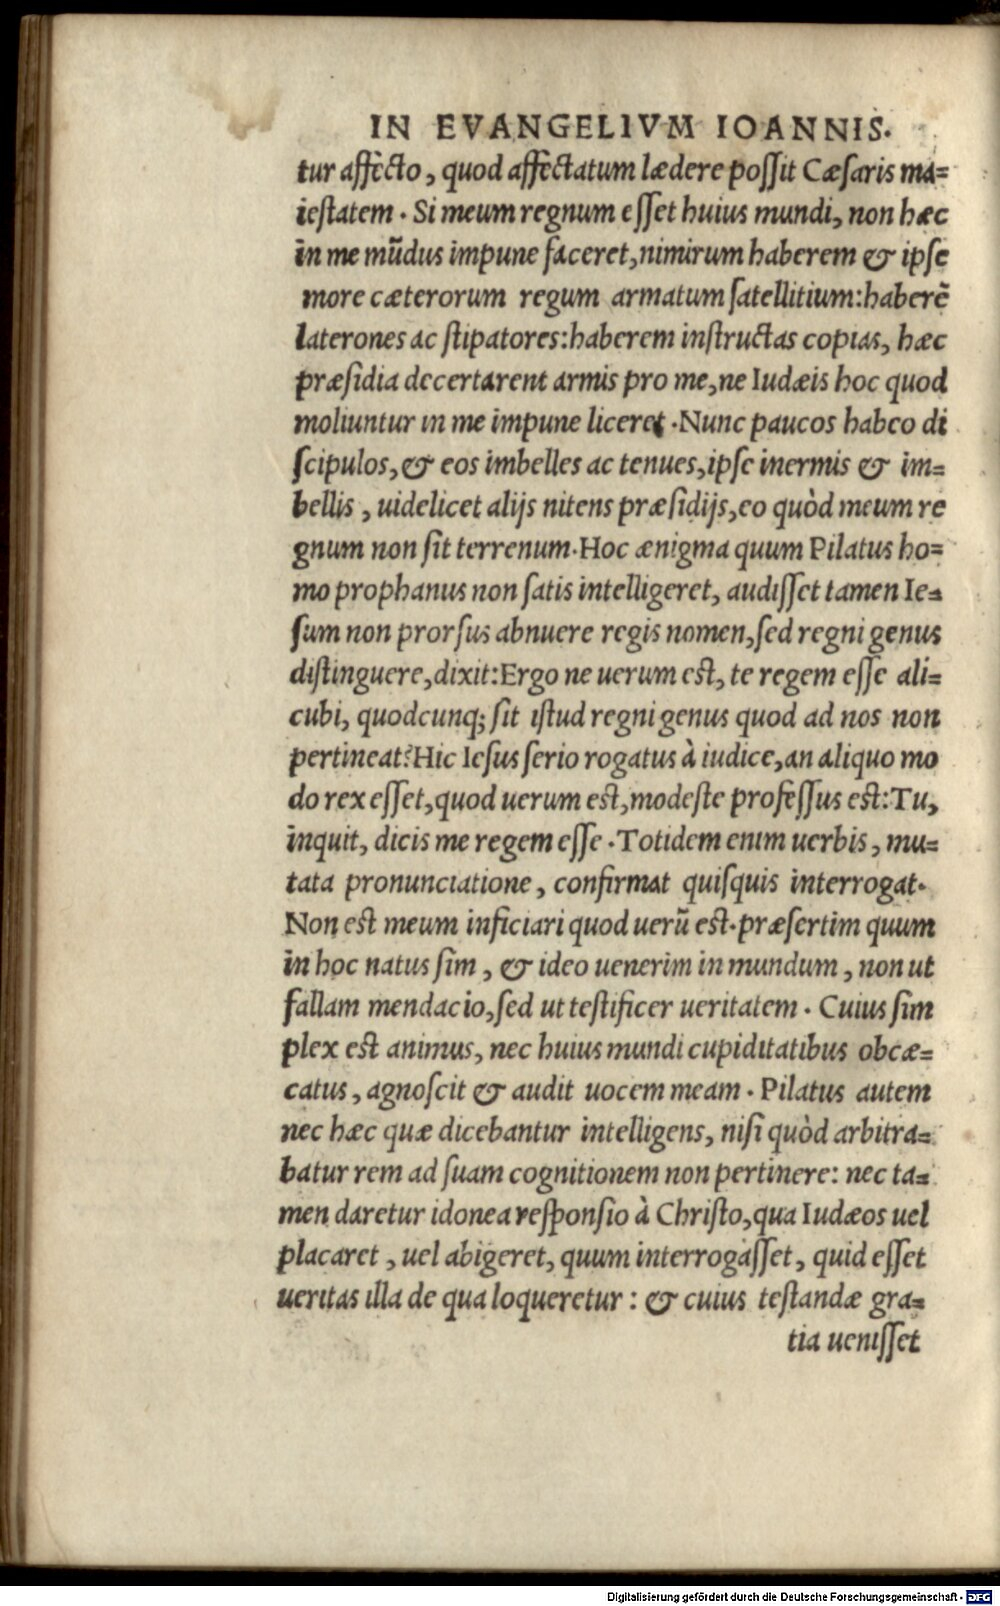 IN EVANGELIVM IOANNIS.
tur affecto, quod affectatum lædere possit Cæsaris ma=
iestatem. Si meum regnum esset huius mundi, non hæc
in me mūdus impune faceret, nimirum haberem & ipse
more cæterorum regum armatum satellitium: haberē
laterones ac stipatores: haberem instructas copias, hæc
præsidia decertarent armis pro me, ne Iudæis hoc quod
moliuntur in me impune liceret. Nunc paucos habeo di
scipulos, & eos imbelles ac tenues, ipse inermis & im=
bellis, uidelicet alijs nitens præsidijs, eo quòd meum re
gnum non sit terrenum. Hoc ænigma quum Pilatus ho=
mo prophanus non satis intelligeret, audisset tamen Ie=
sum non prorsus abnuere regis nomen, sed regni genus
distinguere, dixit: Ergo ne uerum est, te regem esse ali=
cubi, quodcunq; sit istud regni genus quod ad nos non
pertineat? Hic Iesus serio rogatus à iudice, an aliquo mo
do rex esset, quod uerum est, modeste professus est: Tu,
inquit, dicis me regem esse. Totidem enim uerbis, mu=
tata pronunciatione, confirmat quisquis interrogat.
Non est meum inficiari quod uerū est. præsertim quum
in hoc natus sim, & ideo uenerim in mundum, non ut
fallam mendacio, sed ut testificer ueritatem. Cuius sim
plex est animus, nec huius mundi cupiditatibus obcæ=
catus, agnoscit & audit uocem meam. Pilatus autem
nec hæc quæ dicebantur intelligens, nisi quòd arbitra=
batur rem ad suam cognitionem non pertinere: nec ta=
men daretur idonea responsio à Christo, qua Iudæos uel
placaret, uel abigeret, quum interrogasset, quid esset
ueritas illa de qua loqueretur: & cuius testandæ gra=
tia uenisset
Digitalisierung gefördert durch die Deutsche Forschungsgemeinschaft - DFG